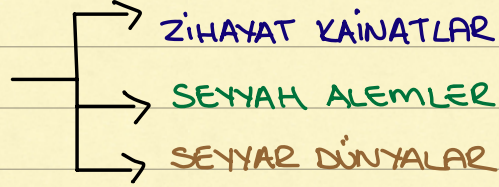 ZİHAYAT KAİNATLAR
SEYYAH ALEMLER
SEYYAR DÜNYALAR